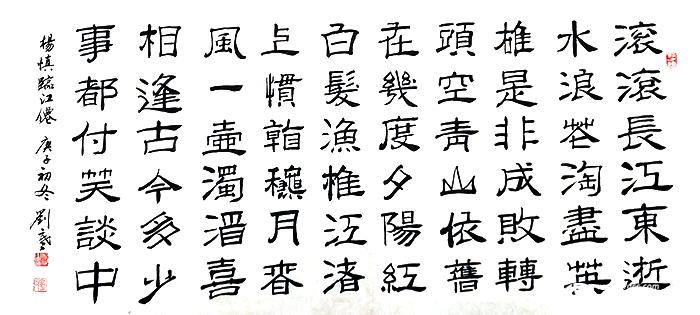 滚滾長江東逝
水浪花淘盡英
雄是非成敗轉
頭空青山依舊
在幾度夕陽紅
白髮漁樵江渚
上慣看秋月春
風一壺濁酒喜
相逢古今多少
事都付笑談中
楊慎臨江僊 庚子初冬 劉